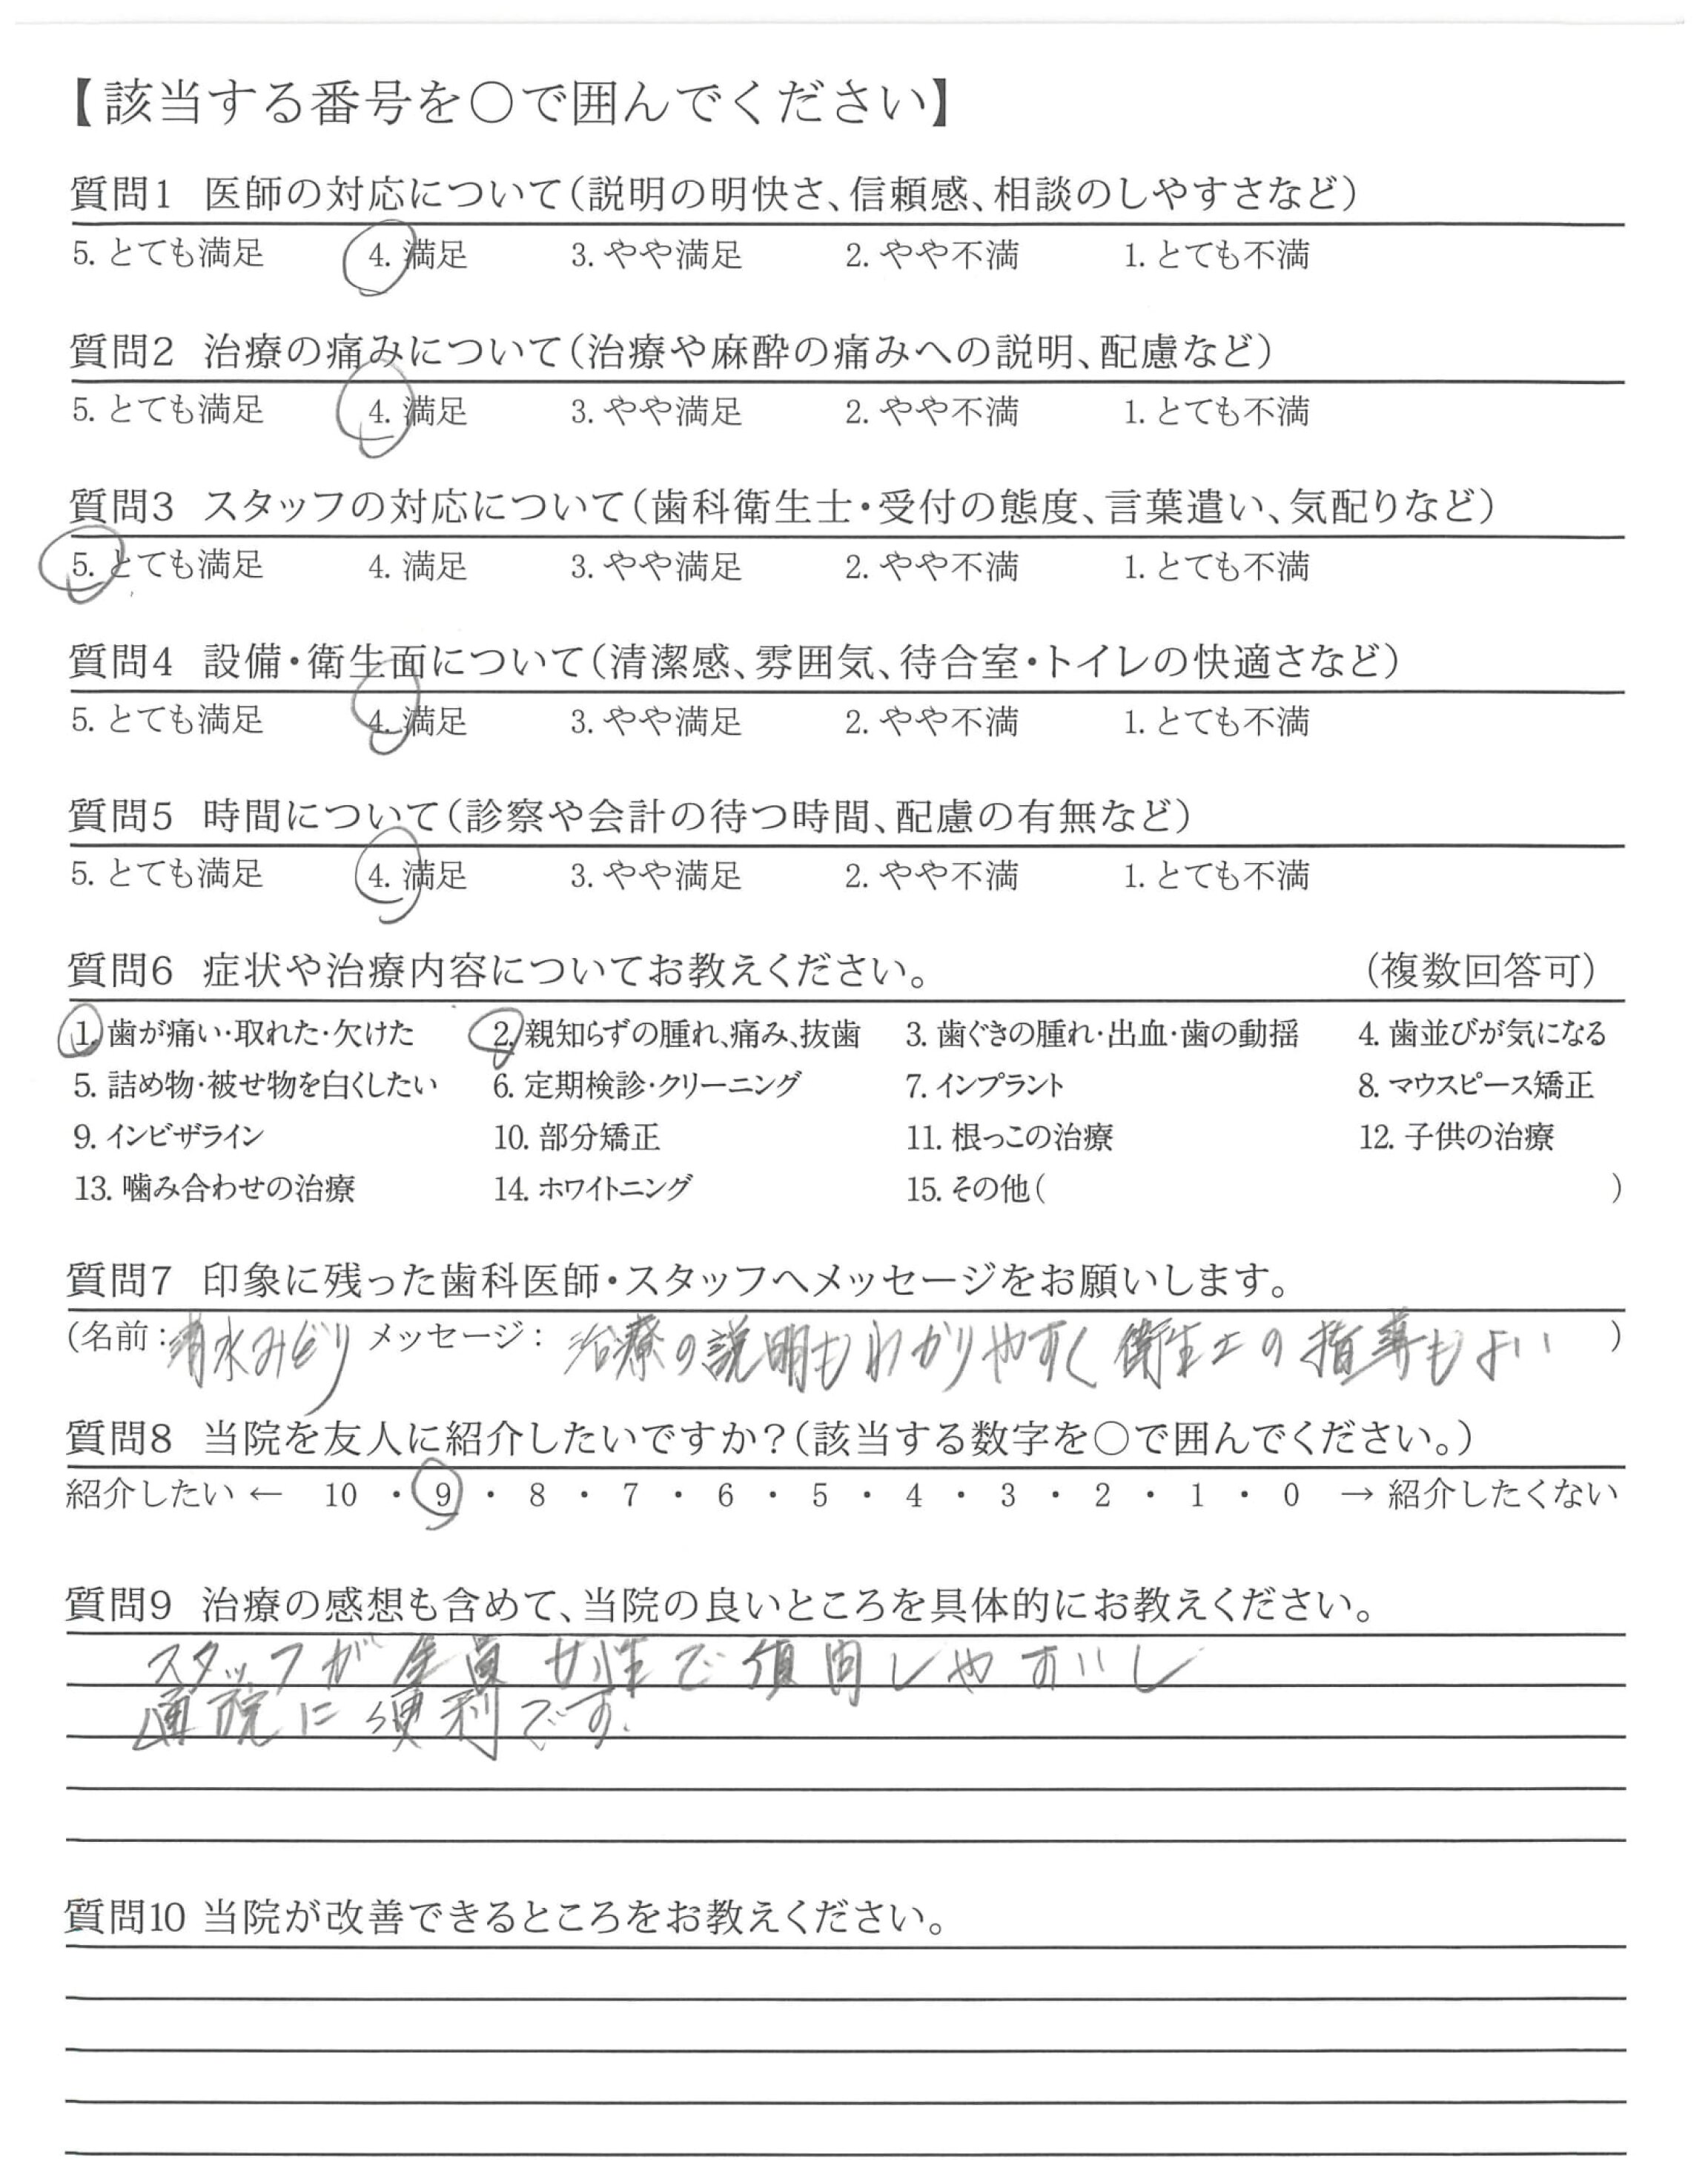 【該当する番号を○で囲んでください】
質問1 医師の対応について(説明の明快さ、信頼感、相談のしやすさなど)
5. とても満足 4. 満足 3. やや満足 2. やや不満 1. とても不満
質問2 治療の痛みについて(治療や麻酔の痛みへの説明、配慮など)
5. とても満足 4. 満足 3. やや満足 2. やや不満 1. とても不満
質問3 スタッフの対応について(歯科衛生士・受付の態度、言葉遣い、気配りなど)
5. とても満足 4. 満足 3. やや満足 2. やや不満 1. とても不満
質問4 設備・衛生面について(清潔感、雰囲気、待合室・トイレの快適さなど)
5. とても満足 4. 満足 3. やや満足 2. やや不満 1. とても不満
質問5 時間について(診察や会計の待つ時間、配慮の有無など)
5. とても満足 4. 満足 3. やや満足 2. やや不満 1. とても不満
質問6 症状や治療内容についてお教えください。 (複数回答可)
1. 歯が痛い・取れた・欠けた 2. 親知らずの腫れ、痛み、抜歯 3. 歯ぐきの腫れ・出血・歯の動揺 4. 歯並びが気になる
5. 詰め物・被せ物を白くしたい 6. 定期検診・クリーニング 7. インプラント 8. マウスピース矯正
9. インビザライン 10. 部分矯正 11. 根っこの治療 12. 子供の治療
13. 噛み合わせの治療 14. ホワイトニング 15. その他( )
質問7 印象に残った歯科医師・スタッフへメッセージをお願いします。
(名前：清水みどり メッセージ：治療の説明もわかりやすく衛生士の指導もよい )
質問8 当院を友人に紹介したいですか？(該当する数字を○で囲んでください。)
紹介したい ← 10 ・ 9 ・ 8 ・ 7 ・ 6 ・ 5 ・ 4 ・ 3 ・ 2 ・ 1 ・ 0 → 紹介したくない
質問9 治療の感想も含めて、当院の良いところを具体的にお教えください。
スタッフが全員女性で質問しやすいし
通院に便利です.
質問10 当院が改善できるところをお教えください。